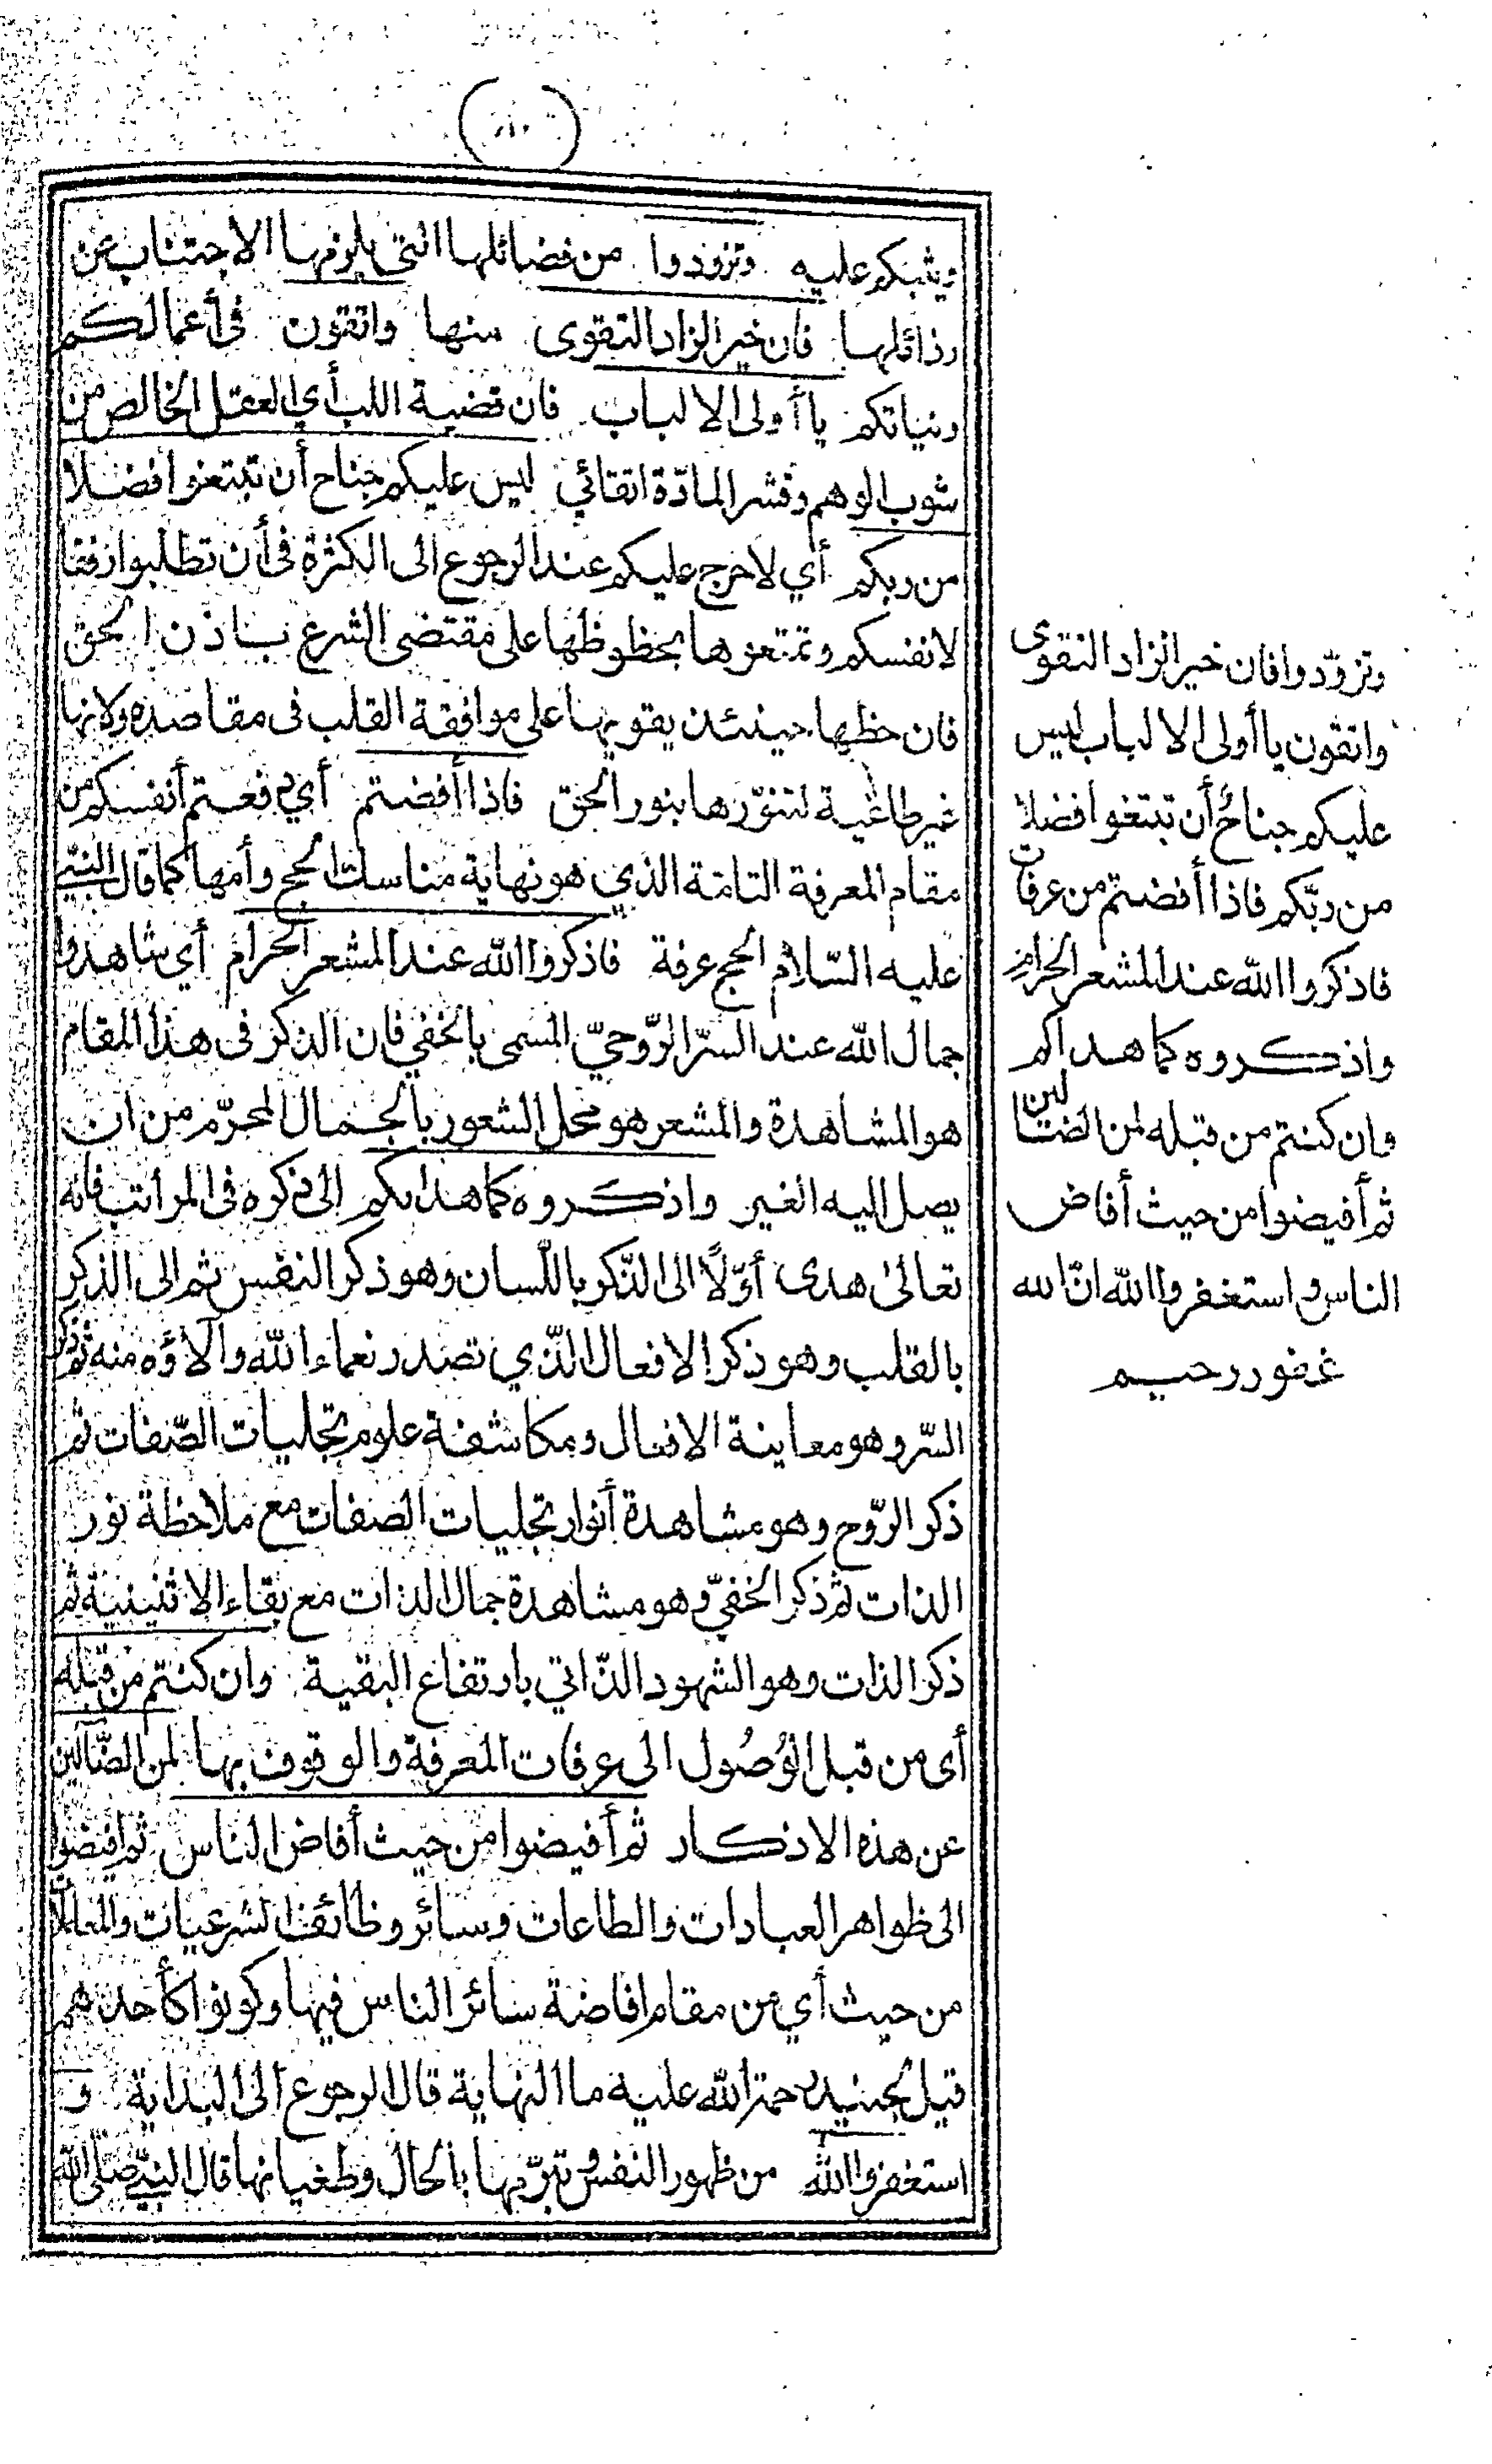 ويثبكم عليه وتزودوا من فضائلها التي يلزمها الاجتناب عن
رذائلها فان خير الزاد التقوى منها واتقون في أعمالكم
ونياتكم يا أولى الالباب فان قضية اللب أي العقل الخالص من
شوب الوهم وقشر المادّة اتقائي ليس عليكم جناح أن تبتغوا فضلا
من ربكم أي لا حرج عليكم عند الرجوع الى الكثرة في أن تطلبوا رفقا
لانفسكم وتمتعوها بحظوظها على مقتضى الشرع باذن الحق
فان حظها حينئذ يقويها على موافقة القلب في مقاصده ولانها
غير طاغية لتنوّرها بنور الحق فاذا أفضتم أي دفعتم أنفسكم من
مقام المعرفة التامّة الذي هو نهاية مناسك الحج وأمها كما قال النبيّ
عليه السّلام الحج عرفة فاذكروا الله عند المشعر الحرام أي شاهدوا
جمال الله عند السرّ الرّوحيّ المسمى بالخفي فان الذكر في هذا المقام
هو المشاهدة والمشعر هو محل الشعور بالجمال المحرّم من ان
يصل اليه الغير واذكروه كما هداكم الى ذكره في المراتب فانه
تعالىٰ هدى أوّلًا الى الذّكر باللّسان وهو ذكر النفس ثم الى الذكر
بالقلب وهو ذكر الافعال الذّي تصدر نعماء الله والآؤه منه ثم ذكر
السّر وهو معاينة الافعال ومكاشفة علوم تجليات الصّفات ثم
ذكر الرّوح وهو مشاهدة أنوار تجليات الصفات مع ملاحظة نور
الذات ثم ذكر الخفيّ وهو مشاهدة جمال الذات مع بقاء الاثنينية ثم
ذكر الذات وهو الشهود الذّاتي بارتفاع البقية وان كنتم من قبله
أى من قبل الوُصُول الى عرفات المعرفة والوقوف بها لمن الضّآلين
عن هذه الاذكار ثم أفيضوا من حيث أفاض الناس ثم افيضوا
الى ظواهر العبادات والطاعات وسائر وظائف الشرعيات والمعاملا
من حيث أي من مقام افاضة سائر الناس فيها وكونوا كأحدهم
قيل لجنيد رحمة الله عليه ما النهاية قال الرجوع الى البداية و
استغفروا الله من ظهور النفس وتبرّمها بالحال وطغيانها قال النبيّ صلّى الله
وتزوّدوا فان خير الزاد التقوى
واتقون يا أولى الالباب ليس
عليكم جناحٌ أن تبتغوا فضلا
من ربّكم فاذا أفضتم من عرفات
فاذكروا الله عند المشعر الحرام
واذكروه كما هداكم
وان كنتم من قبله لمن الضآلين
ثم أفيضوا من حيث أفاض
الناس واستغفروا الله انّ الله
غفور رحيم